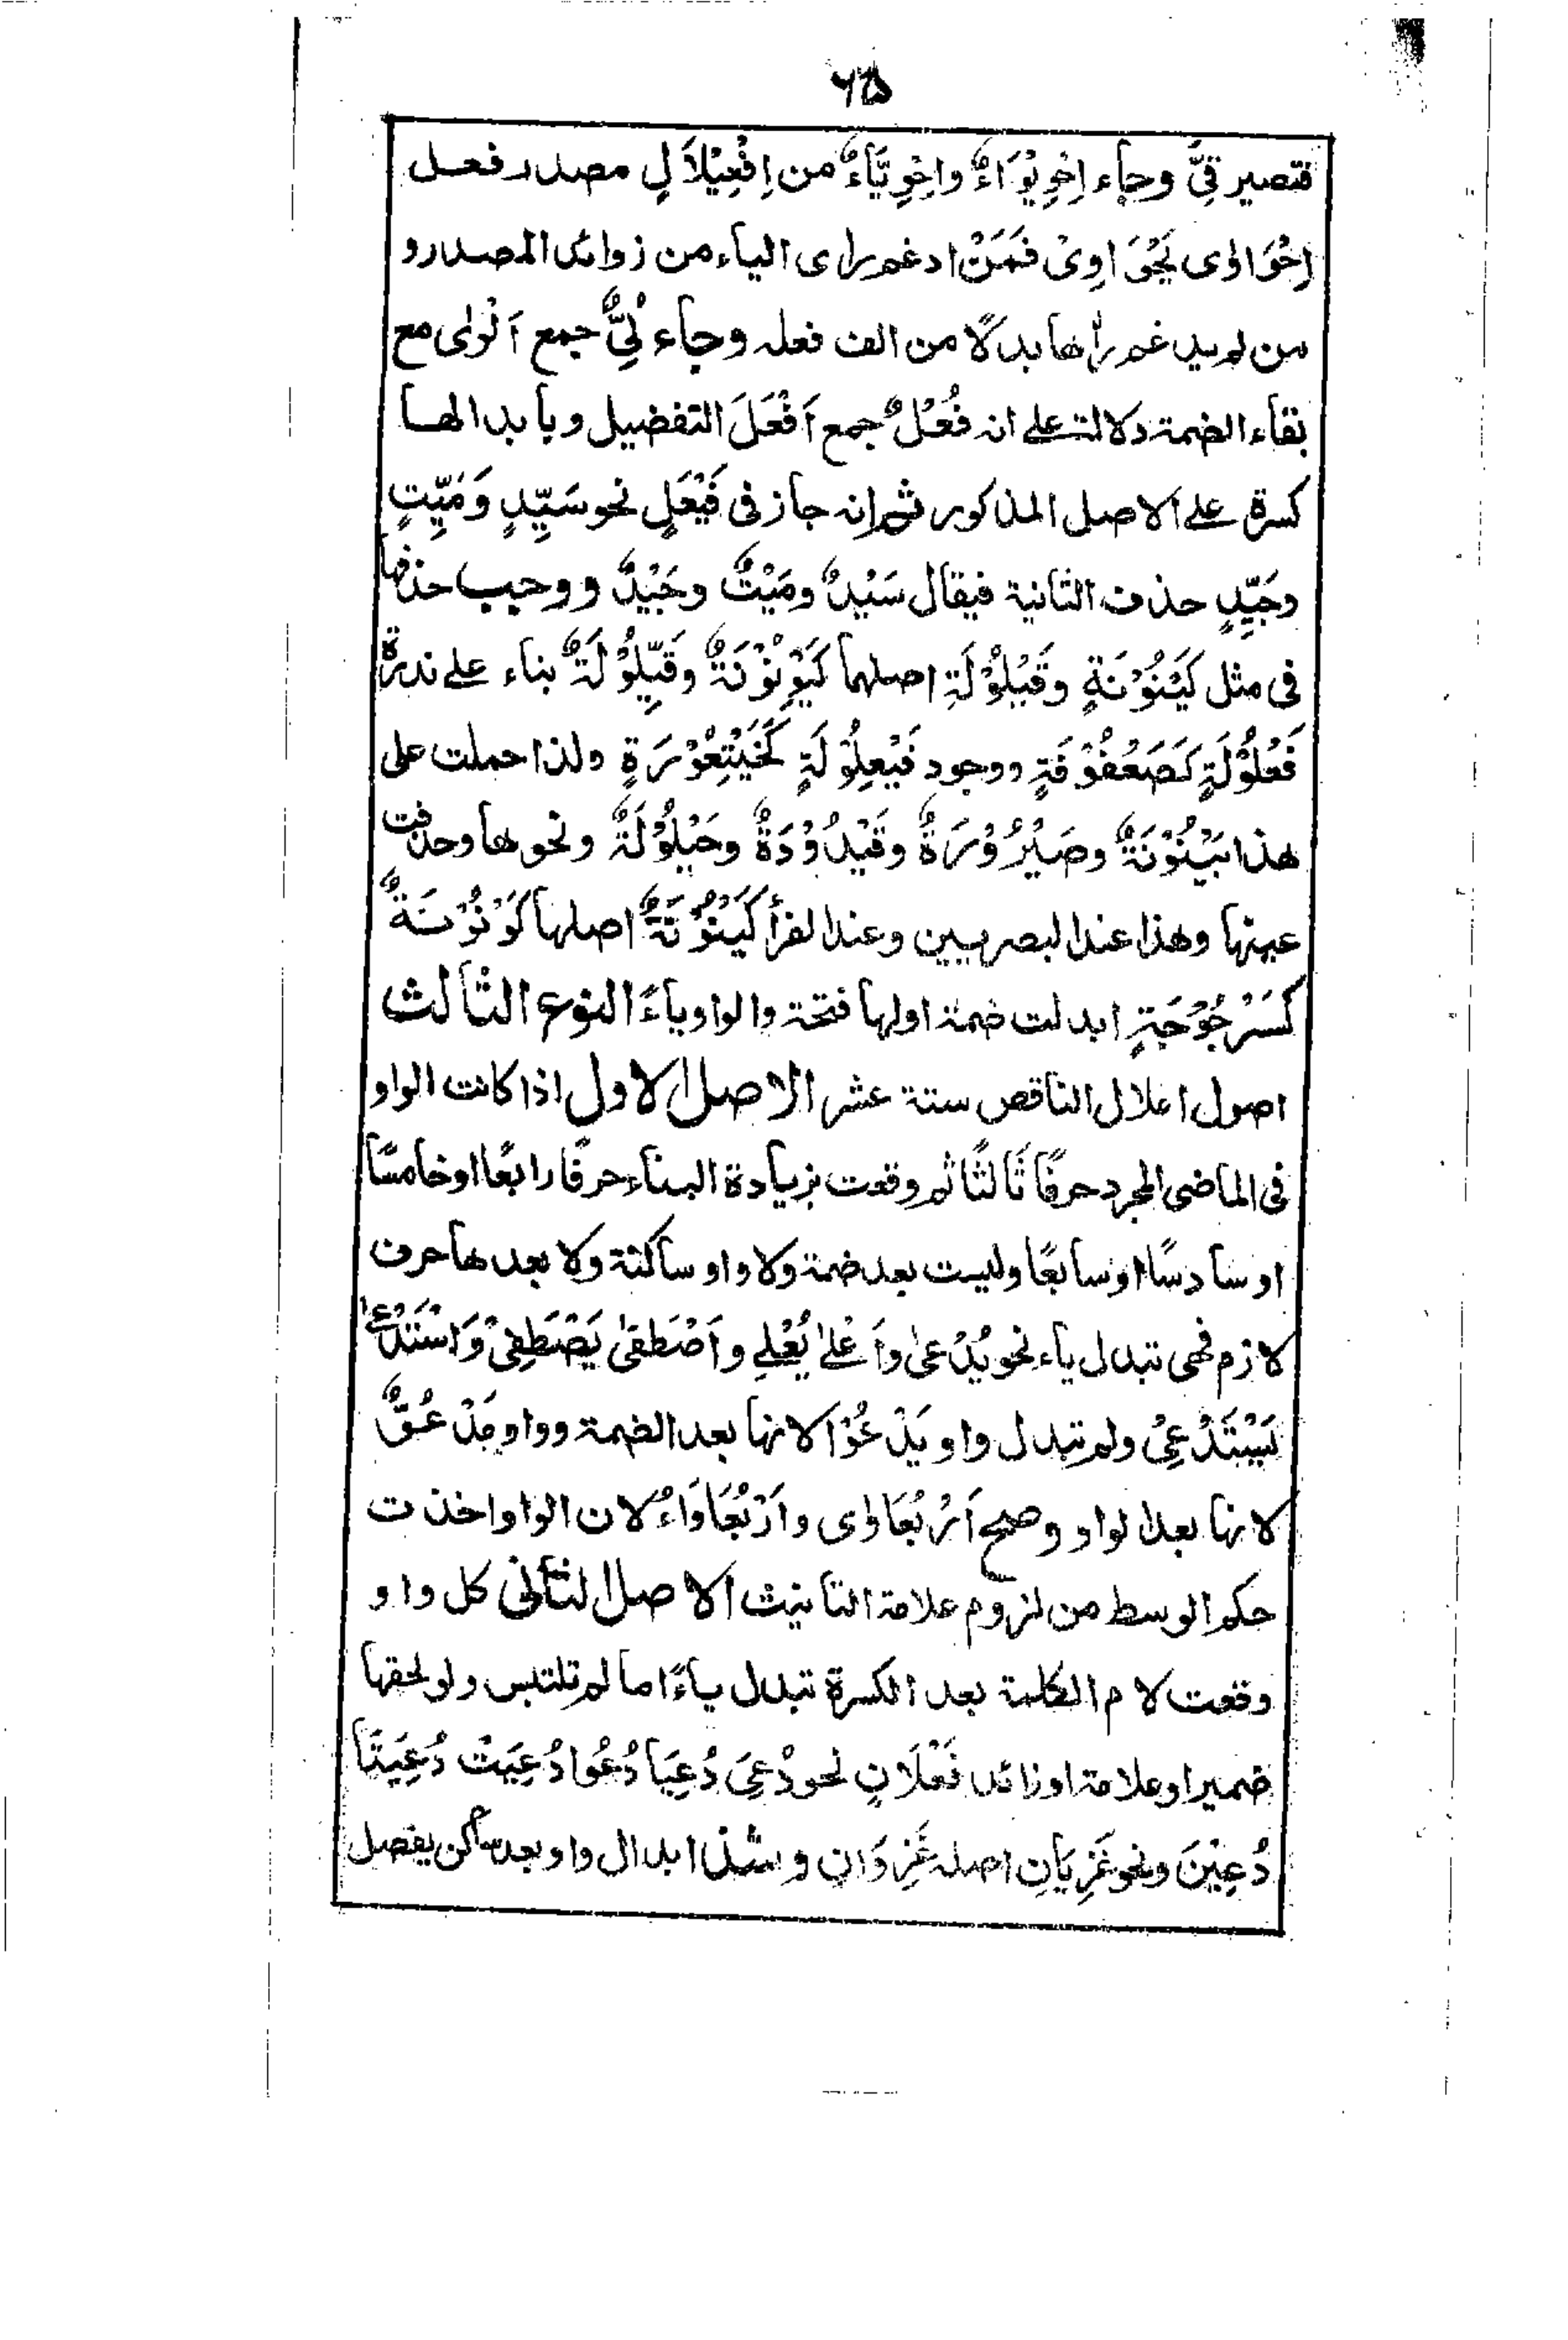 ۶۵
فتصير قِيٌّ وجاء اِحْوِيْوَاءٌ واِحْوِيَّاءٌ من اِفْعِيْلَالٍ مصدر فعل
اِحْوَاوٰى يَحْوَاوِىْ فَمَنْ ادغم راى الياء من زوائد المصدر و
من لم يدغم راٰها بدلًا من الف فعله وجاء لُيٌّ جمع اَلْوٰى مع
بقاء الضمة دلالة على انه فُعْلٌ جمع اَفْعَلَ التفضيل وبابدالها
كسرة على الاصل المذكور ثم انه جاز فى فَيْعِلٍ نحو سَيِّدٍ وَمَيِّتٍ
وجَيِّدٍ حذف الثانية فيقال سَيْدٌ ومَيْتٌ وجَيْدٌ ووجب حذفها
فى مثل كَيْنُوْنَةٍ وقَيْلُوْلَةٍ اصلهما كَيْوِنُوْنَةٌ وقَيِّلُوْلَةٌ بناء على ندرة
فَعْلُوْلَةٍ كَصَعْفُوْقَةٍ ووجود فَيْعِلُوْلَةٍ كَخَيْتِعُوْرَةٍ ولذا حملت على
هذا بَيْنُوْنَةٌ وصَيْرُوْرَةٌ وقَيْدُوْدَةٌ وحَيْلُوْلَةٌ ونحوها وحذفت
عينها وهذا عند البصريين وعند الفرأ كَيْنُوْنَةٌ اصلها كُوْنُوْنَةٌ
كَسُرْجُوْجَةٍ ابدلت ضمة اولها فتحة والواو ياءً النوع الثالث
اصول اعلال الناقص ستة عشر الاصل الاول اذا كانت الواو
فى الماضى المجرد حرفًا ثالثًا ثم وقعت بزيادة البناء حرفًا رابعًا او خامسًا
او سادسًا او سابعًا وليست بعد ضمة ولا واو ساكنة ولا بعدها حرف
لازم فهى تبدل ياء نحو يُدْعىٰ واَعْلىٰ يُعْلِى واَصْطَفىٰ يَصْطَفِىْ وَاسْتَدْعىٰ
يَسْتَدْعِىْ ولم تبدل واو يَدْعُوْا لانها بعد الضمة وواو مَدْعُوٌّ
لانها بعد الواو وصح اَرْبُعَاوٰى واَرْبُعَاوَاءُ لان الواو اخذت
حكم الوسط من لزوم علامة التانيث الاصل الثانى كل واو
وقعت لام الكلمة بعد الكسرة تبدل ياءً اما لم تلتبس ولو لحقها
ضمير او علامة او زائد فَعْلَانِ نحو دُعِىَ دُعِيَا دُعُوا دُعِيَتْ دُعِيَتَا
دُعِيْنَ ونحو غَزِيَانِ اصله غَزِوَانِ وشذ ابدال واو بعد ساكن يفصل